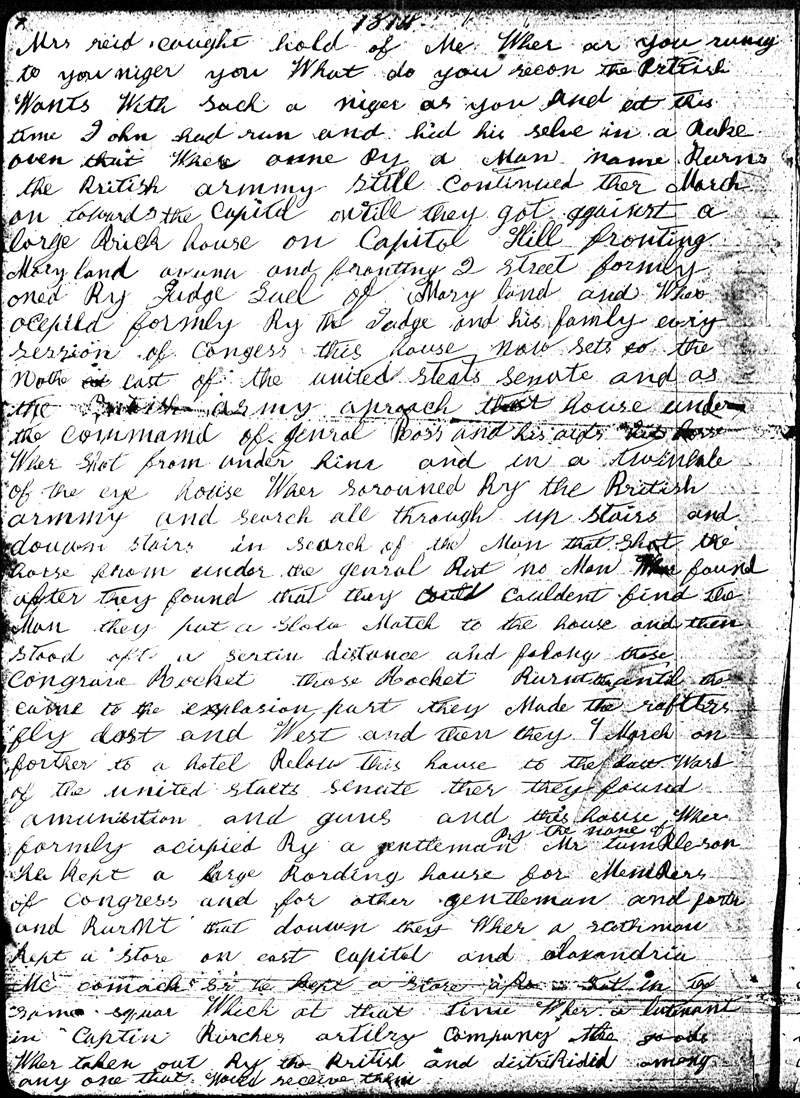 1814
Mrs reid caught hold of Me Wher ar you runig
to you niger you What do you recon the British
Wants With such a niger as you And at this
time John had run and hid his selve in a Bake
oven that Where onne By a Man name Burns
the British armmy still Continued ther March
on towards the Capitol ontill they got against a
large Brick house on Capitol Hill fronting
Mary land avanu and fronting 2 street formly
oned By Judge Suel of Mary land and Wher
ocepild formly By the Judge and his famly evry
session of Congess this house now sets to the
Nothe east of the united steats senate and as
the British army aproach that house under
the command of genral Ross and his aids his horse
Wher shot from under him and in a twinkle
of the eye house Wher sorouned By the British
armmy and search all through up stairs and
douwn stairs in search of the Man that shot the
horse from under the genral But no Man Wher found
after they found that they could cauldent find the
Man they put a slow Match to the house and then
stood off a sertin distance and those
Congrave Rocket those Rocket Burnt until the
came to the explosion part they Made the raftters
fly East and West and then they March on
forther to a hotel Below this house to the East Ward
of the united staets senate ther they found
amunistion and guns and this house Wher
formly ocipied By a gentleman By the name of Mr tumbleson
he kept a large Bording house for Members
of congress and for other gentleman and
and Burnt that douwn they Wher a scothman
kept a store on east capitol and alaxandria
Mc comach Sr he kept a store in the
same squar Which at that time Wher a lutenant
in Captin Burches artilry Company the goods
Wher taken out By the British and distribidid among
any one that Would receive them